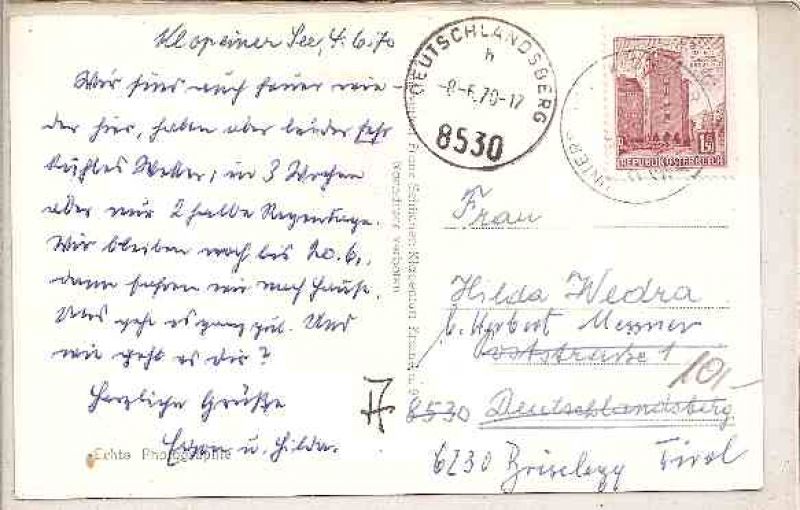 Klopeiner See, 4.6.70
Wir sind auch heuer wie-
der hier, haben aber leider sehr
kühles Wetter; in 3 Wochen
aber nur 2 halbe Regentage.
Wir bleiben noch bis 20.6.,
dann fahren wir nach Hause.
Uns geht es ganz gut. Und
wie geht es Dir?
Herzliche Grüße
u. Hilda.
Echte Photographie
DEUTSCHLANDSBERG
h
-8.-6.70-17
8530
1.50
REPUBLIK ÖSTERREICH
Franz Schilcher, Klagenfurt
Nachdruck verboten
Frau
Hilda Wedra
b. Herbert Messner
Poststraße 1
8530 Deutschlandsberg
10,-
6230 Brixlegg Tirol